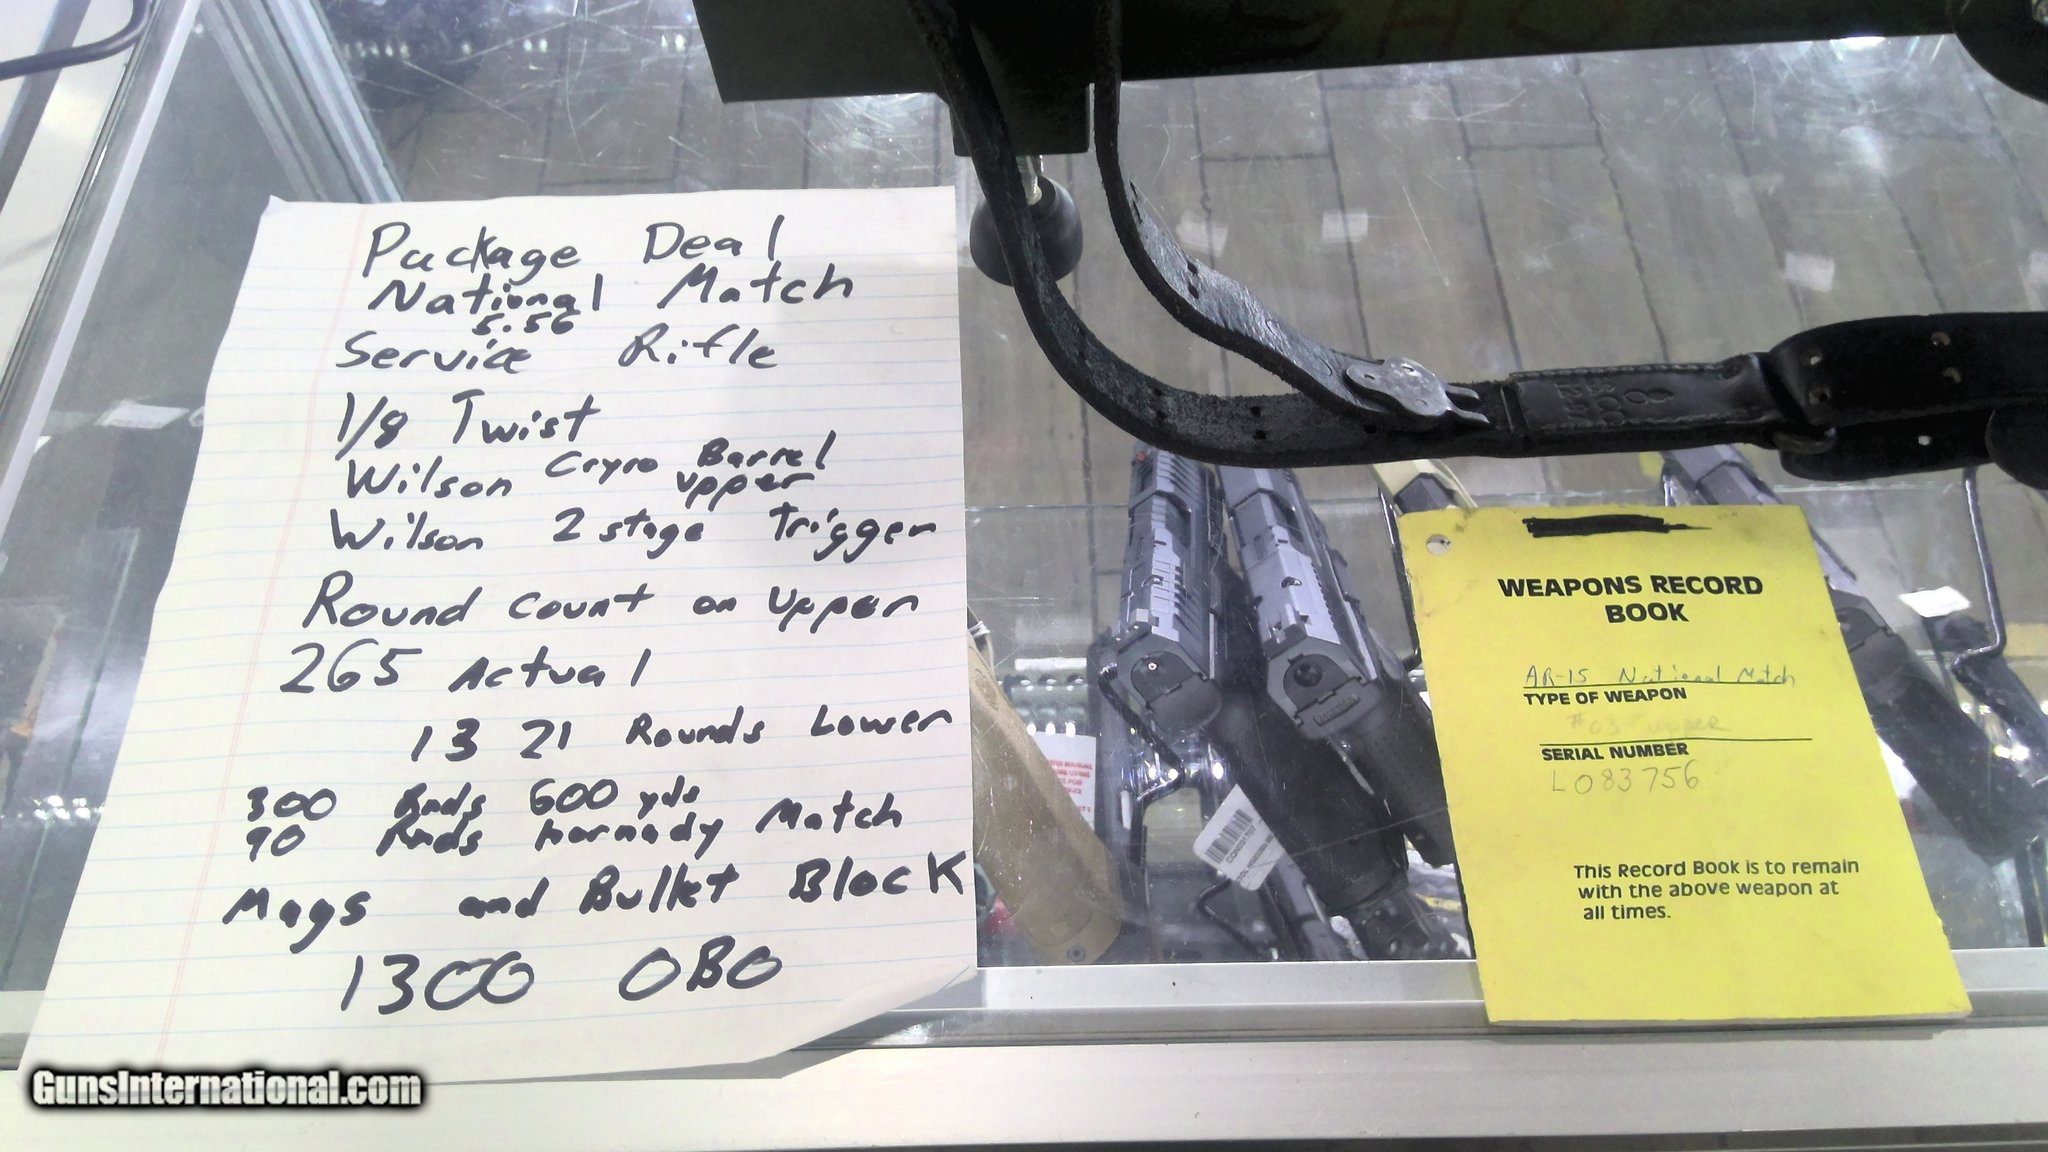 Package Deal
National Match
5.56
Service Rifle
1/8 Twist
Wilson Cryro Barrel
upper
Wilson 2 stage Trigger
Round count on upper
265 Actual
1321 Rounds Lower
300 Rnds 600 yds
90 Rnds hornady Match
Mags and Bullet Block
1300 OBO
WEAPONS RECORD
BOOK
AR-15 National Match
TYPE OF WEAPON
#03 upper
SERIAL NUMBER
L083756
This Record Book is to remain
with the above weapon at
all times.
GunsInternational.com